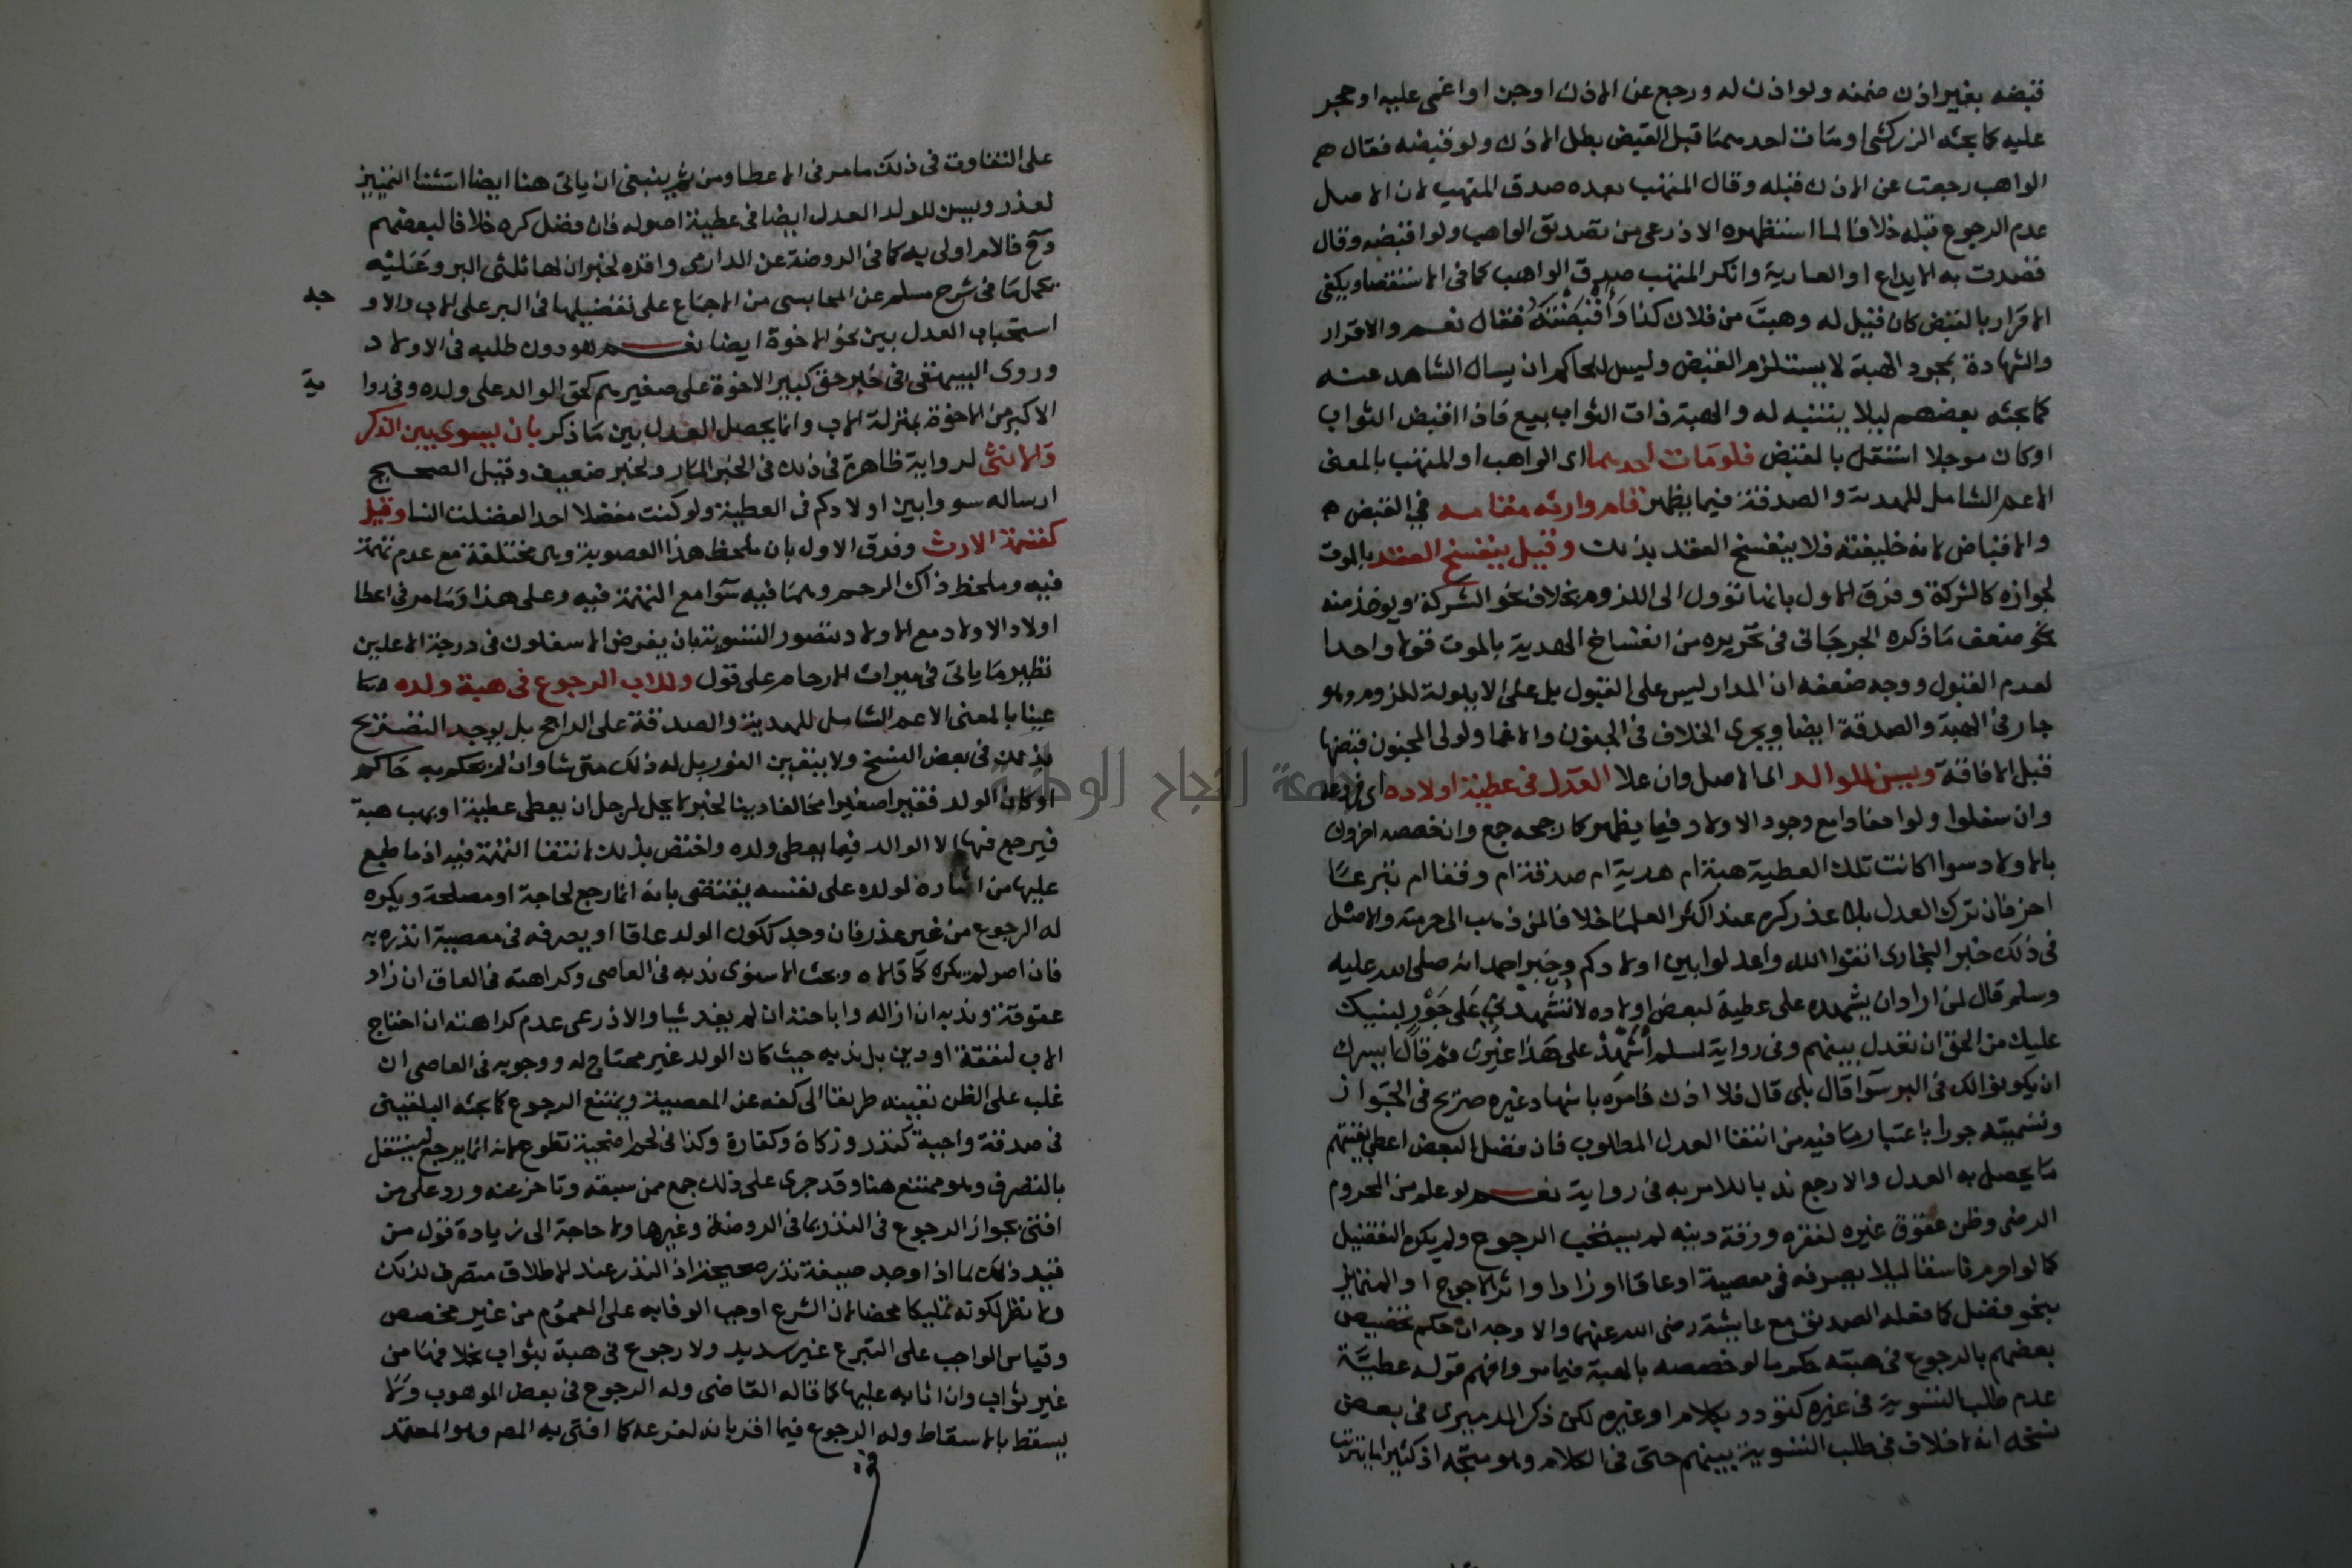 قبضه بغير اذن ضمنه ولو اذن له ورجع عن الاذن او جن او اغمى عليه او حجر
عليه كما بحثه الزركشي او مات احدهما قبل القبض بطل الاذن ولو قبضه فقال
الواهب رجعت عن الاذن قبله وقال المتهب بعده صدق المتهب لان الاصل
عدم الرجوع قبله خلافا لما استظهره الاذرعي من تصديق الواهب ولو اقبضه وقال
قصدت به الايداع او العارية وانكر المتهب صدق الواهب كما في الاستقصا ويكفي
الاقرار بالقبض كان قيل له وهبت من فلان كذا وأقبضته فقال نعم والاقرار
والشهادة بمجرد الهبة لا يستلزم القبض وليس للحاكم ان يسال الشاهد عنه
كما بحثه بعضهم ليلا يتنبه له والهبة ذات الثواب بيع فاذا اقبض الثواب
او كان موجلا استقل بالقبض فلو مات احدهما اى الواهب او المتهب بالمعنى
الاعم الشامل للهدية والصدقة فيما يظهر قام وارثه مقامه في القبض
والاقباض لانه خليفته فلا ينفسخ العقد بذلك وقيل ينفسخ العقد بالموت
لجوازه كالشركة وفرق الاول بانها تؤول الى اللزوم بخلاف نحو الشركة ويوخذ منه
ضعف ما ذكره الجرجاني في تحريره من انفساخ الهدية بالموت قولا واحدا
لعدم القبول ووجه ضعفه ان المدار ليس على القبول بل على الايلولة للزوم وهو
جار في الهبة والصدقة ايضا ويجرى الخلاف في الجنون والاغما ولولى المجنون قبضها
قبل الافاقة ويسن للوالد اى الاصل وان علا العدل في عطية اولاده اى فروعه
وان سفلوا ولو احفادا مع وجود الاولاد فيما يظهر كما رجحه جمع وان خصصه اخرون
بالاولاد سوا اكانت تلك العطية هبة ام هدية ام صدقة ام وقفا ام تبرعا
اخر فان ترك العدل بلا عذر كره عند اكثر العلما خلافا لمن ذهب الى حرمته والاصل
في ذلك خبر البخارى اتقوا الله واعدلوا بين اولادكم وخبر احمد انه صلى الله عليه
وسلم قال لمن اراد ان يشهده على عطية لبعض اولاده لا تشهدني على جور لبنيك
عليك من الحق ان تعدل بينهم وفي رواية لمسلم أشهد على هذا غيرى ثم قال ايسرك
ان يكونوا لك في البر سوا قال بلى قال فلا اذن فامره باشهاد غيره صريح في الجواز
وتسميته جورا باعتبار ما فيه من انتفا العدل المطلوب فان فضل البعض اعطى بقيتهم
ما يحصل به العدل والا رجع ندبا للامر به في رواية نعم لو علم من المحروم
الرضى وظن عقوق غيره لفقره ورقة دينه لم يستحب الرجوع ولم يكره التفضيل
كما لو احرم فاسقا ليلا يصرفه في معصية او عاقا او زاد او اثر الاحوج او المتمايز
بنحو فضل كما فعله الصديق مع عايشة رضى الله عنهما والاوجه ان حكم تخصيص
بعضهم بالرجوع في هبته حكم ما لو خصصه بالهبة فيما مر وافهم قوله عطية
عدم طلب التسوية في غيره كتودد بكلام او غيره لكن ذكر الدميرى في بعض
نسخه انه لا خلاف في طلب التسوية بينهم حتى في الكلام وهو متجه اذ كثيرا ما يترتب
على التفاوت في ذلك ما مر في الاعطا ومن ثم ينبغى ان ياتى هنا ايضا استثنا التمييز
لعذر ويسن للولد العدل ايضا في عطية اصوله فان فضل كره خلافا لبعضهم
وح فالام اولى به كما في الروضة عن الدارمي واقره لخبر ان لها ثلثى البر وعليه
يحمل ما في شرح مسلم عن المحاسبى من الاجماع على تفضيلها في البر على الاب والاو
جه
استحباب العدل بين نحو الاخوة ايضا نعم هو دون طلبه في الاولاد
وروى البيهقى في خبر حق كبير الاخوة على صغيرهم كحق الوالد على ولده وفي روا
ية
الاكبر من الاخوة بمنزلة الاب وانما يحصل العدل بين ما ذكر بان يسوى بين الذكر
والانثى لرواية ظاهرة في ذلك في الخبر المار ولخبر ضعيف وقيل الصحيح
ارساله سووا بين اولادكم في العطية ولو كنت مفضلا احدا لفضلت النسا وقيل
كقسمة الارث وفرق الاول بان ملحظ هذا العصوبة وهى مختلفة مع عدم تهمة
فيه وملحظ ذاك الرحم وهما فيه سوا مع التهمة فيه وعلى هذا وما مر في اعطا
اولاد الاولاد مع الاولاد تتصور التسوية بان يفرض الاسفلون في درجة الاعلين
نظير ما ياتى في ميراث الارحام على قول وللاب الرجوع في هبة ولده
عينا بالمعنى الاعم الشامل للهدية والصدقة على الراجح بل يوجد التصريح
بذلك في بعض النسخ ولا يتعين الفور بل له ذلك متى شا وان لم يحكم به حاكم
او كان الولد فقيرا صغيرا مخالفا دينا لخبر لا يحل لرجل ان يعطى عطية او يهب هبة
فيرجع فيها الا الوالد فيما يعطى ولده واختص بذلك لانتفا التهمة فيه اذ ما طبع
عليه من ايثاره لولده على نفسه يقتضى بانه انما رجع لحاجة او مصلحة ويكره
له الرجوع من غير عذر فان وجد ككون الولد عاقا او يصرفه في معصية انذره به
فان اصر لم يكره كما قالاه وبحث الاسنوى ندبه في العاصى وكراهته في العاق ان زاد
عقوقه وندبه ان ازاله واباحته ان لم يفد شيا والاذرعى عدم كراهته ان احتاج
الاب لنفقة او دين بل ندبه حيث كان الولد غير محتاج له ووجوبه في العاصى ان
غلب على الظن تعينه طريقا الى كفه عن المعصية ويمتنع الرجوع كما بحثه البلقينى
في صدقة واجبة كنذر وزكاة وكفارة وكذا في لحم اضحية تطوع لانه انما يرجع ليستقل
بالتصرف وهو ممتنع هنا وقد جرى على ذلك جمع ممن سبقه وتاخر عنه ورد على من
افتى بجواز الرجوع في النذر بما في الروضة وغيرها ولا حاجة الى زيادة قول من
قيد ذلك بما اذا وجد صيغة نذر صحيحة اذ النذر عند الاطلاق منصرف لذلك
ولا نظر لكونه تمليكا محضا لان الشرع اوجب الوفا به على العموم من غير مخصص
وقياس الواجب على التبرع غير سديد ولا رجوع في هبة بثواب بخلافها من
غير ثواب وان اثابه عليها كما قاله القاضى وله الرجوع في بعض الموهوب ولا
يسقط بالاسقاط وله الرجوع فيما اقر بانه لفرعه كما افتى به المص وهو المعتمد
جامعة النجاح الوطنية